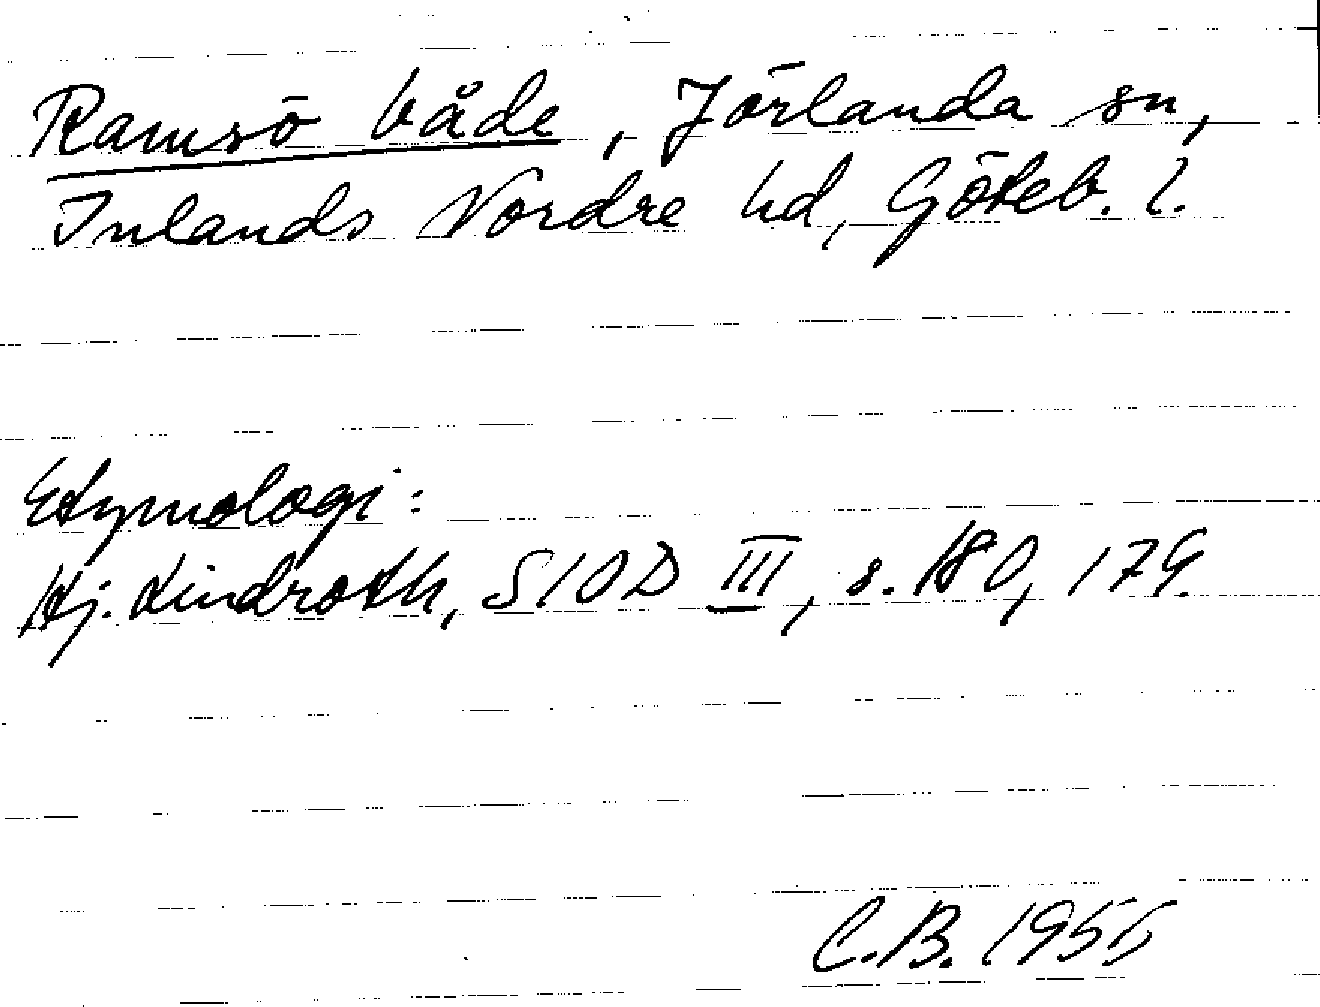 Ramsö både, Jörlanda sn,
Inlands Nordre hd, Göteb. l.
Etymologi:
Hj. Lindroth, SIOD III, s. 180, 179.
C.B. 1955